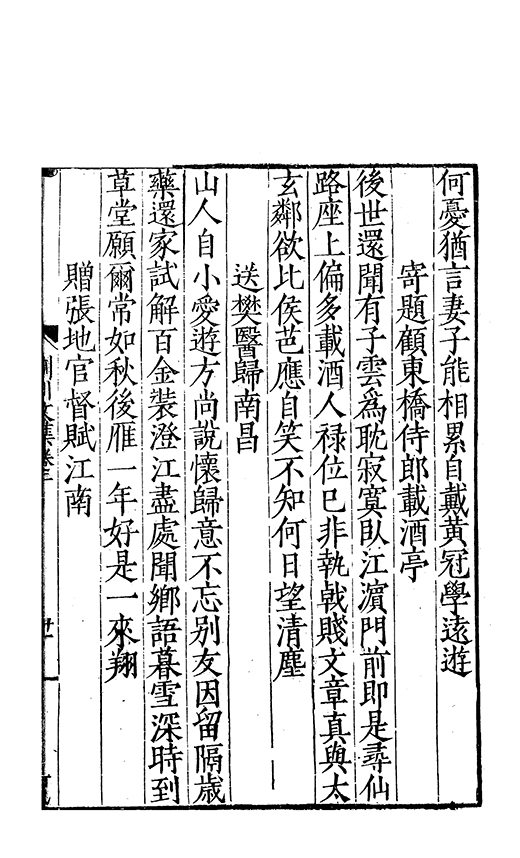 何憂猶言妻子能相累自戴黃冠學遠遊
寄題顧東橋侍郎載酒亭
後世還聞有子雲爲耽寂寞臥江濵門前即是尋仙
路座上偏多載酒人禄位已非執戟賤文章真與太
玄鄰欲比侯芭應自笑不知何日望清塵
送樊醫歸南昌
山人自小愛遊方尚說懷歸意不忘别友因留隔歲
藥還家試解百金裝澄江盡處聞鄉語暮雪深時到
草堂願爾常如秋後雁一年好是一來翔
贈張地官督賦江南